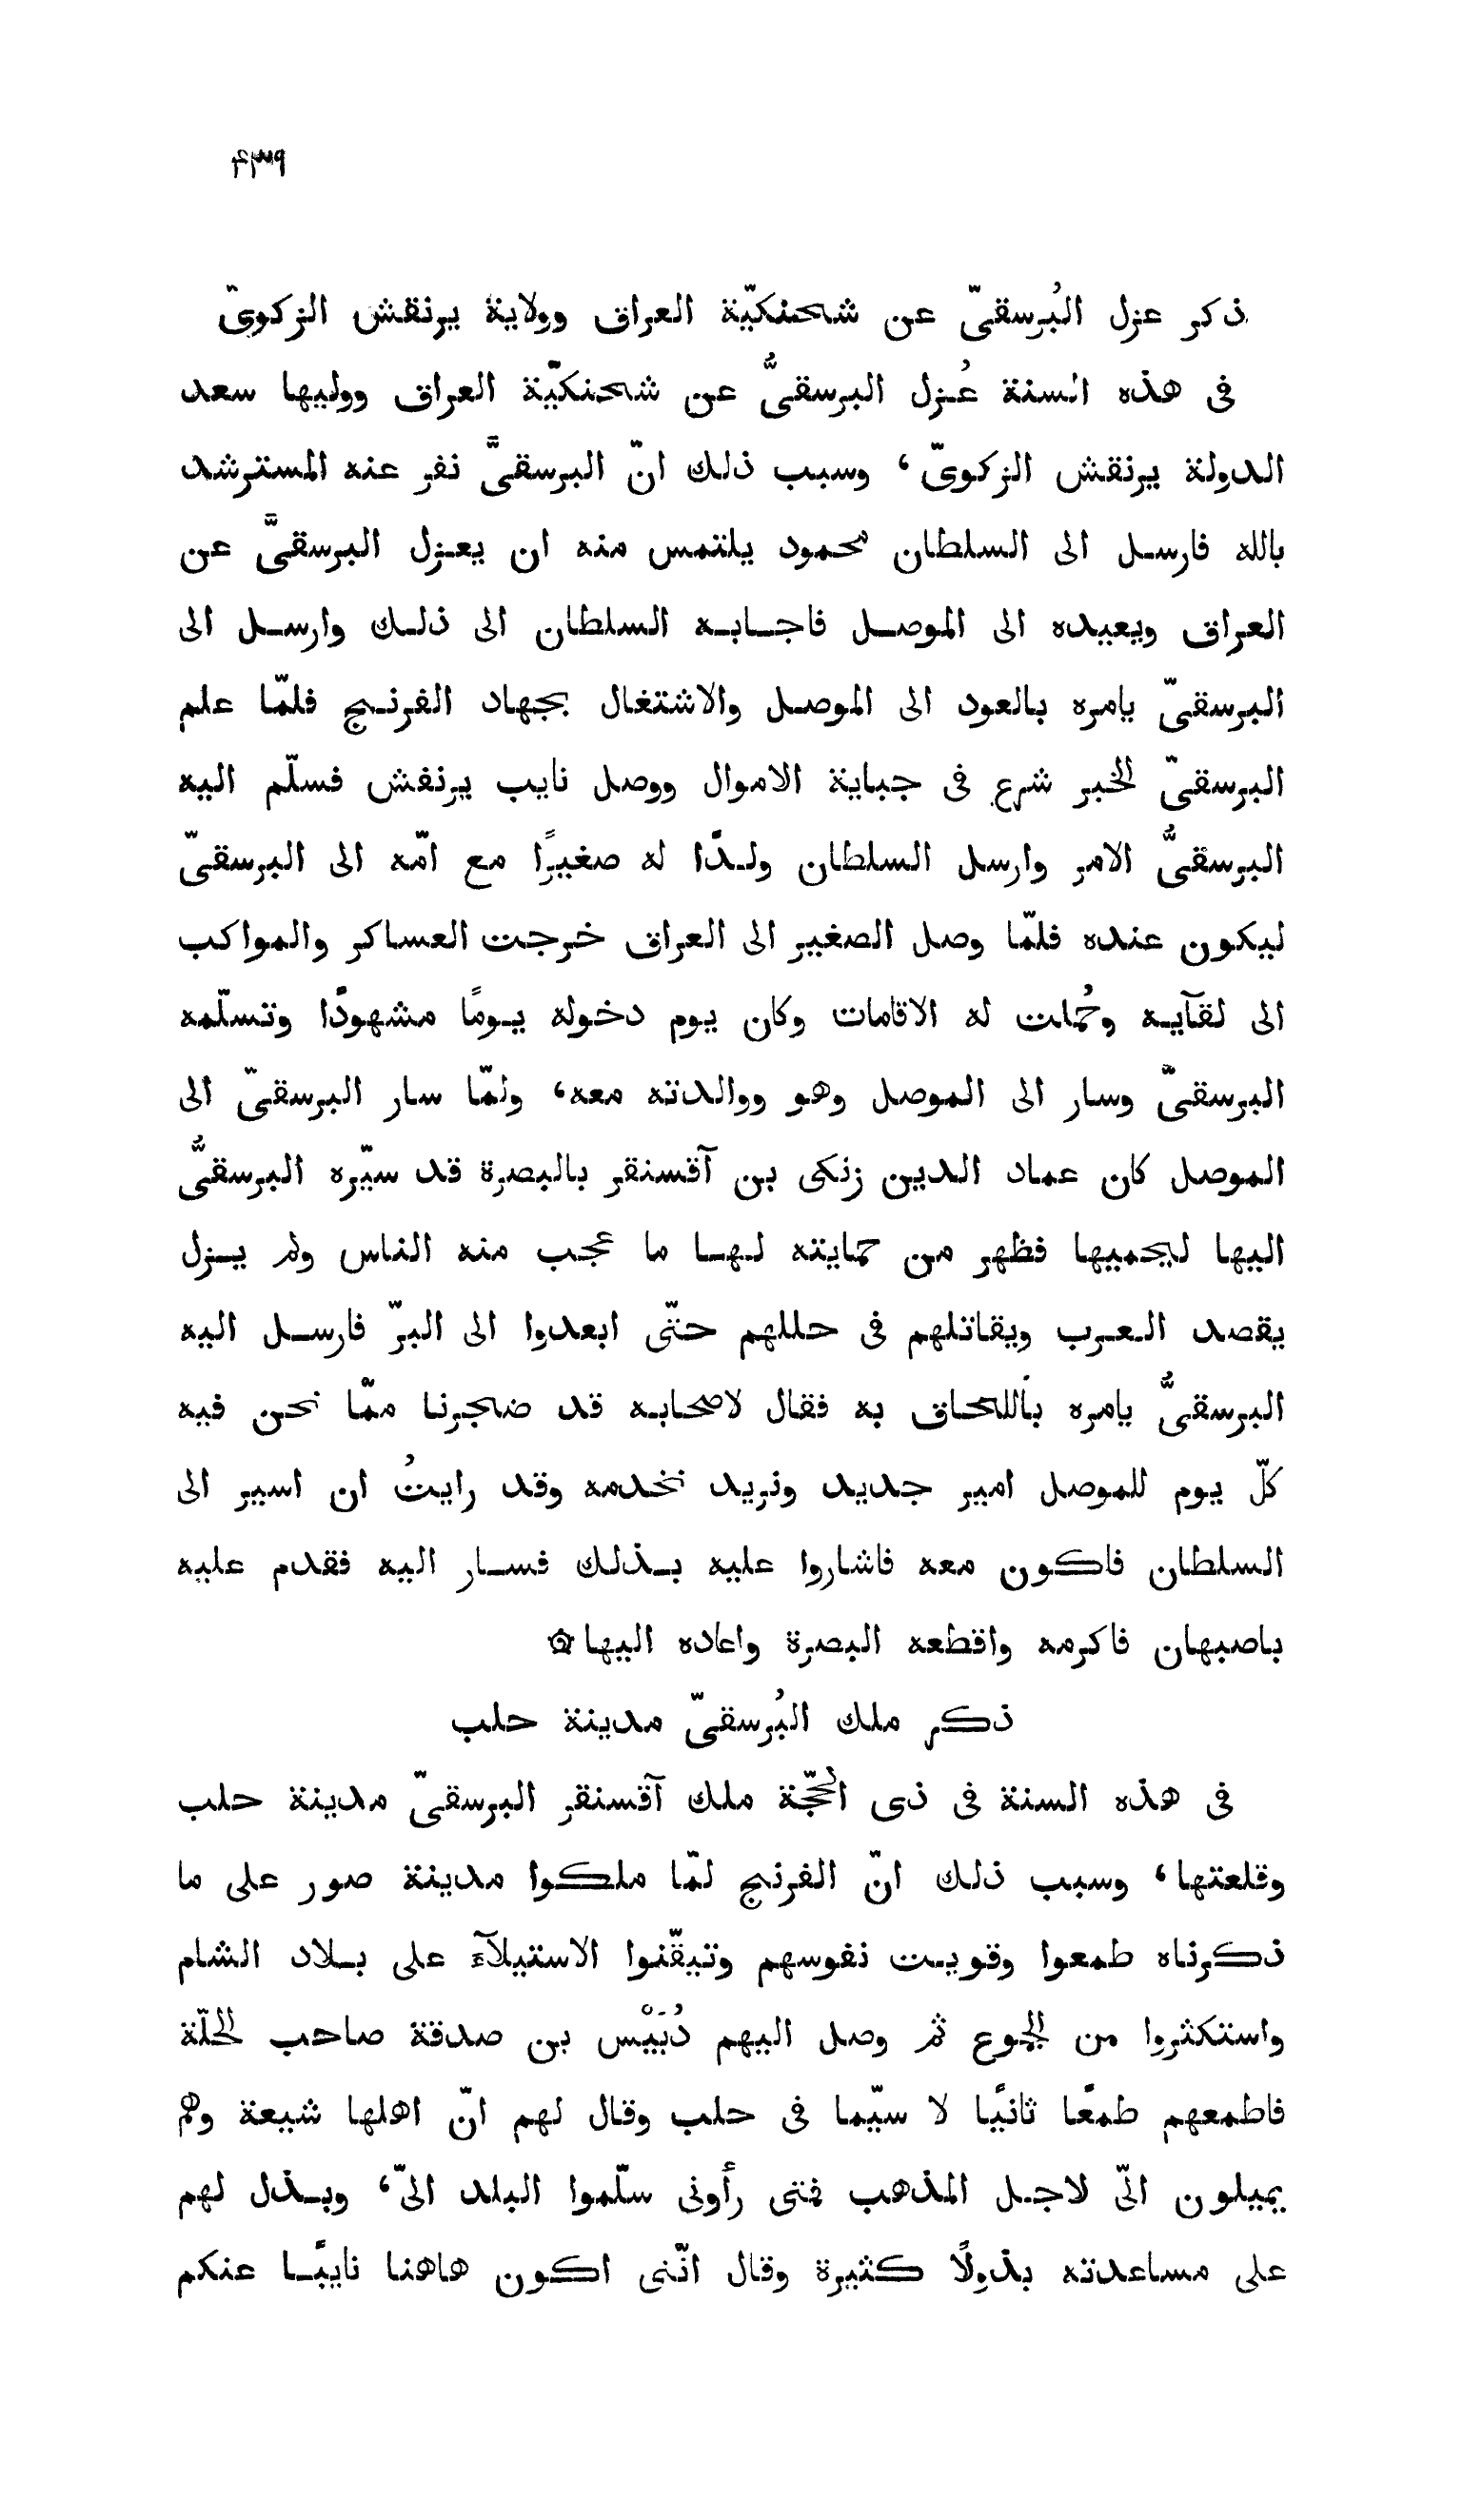 ۴۳۹
ذكر عزل البُرسقىّ عن شحنكيّة العراق وولاية يرنقش الزكوىّ
فى هذه السنة عُزل البرسقىُّ عن شحنكيّة العراق ووليها سعد
الدولة يرنقش الزكوىّ، وسبب ذلك انّ البرسقىَّ نفر عنه المسترشد
بالله فارسل الى السلطان محمود يلتمس منه ان يعزل البرسقىَّ عن
العراق ويعيده الى الموصل فاجابه السلطان الى ذلك وارسل الى
البرسقىّ يامره بالعود الى الموصل والاشتغال بجهاد الفرنج فلمّا علم
البرسقىّ الخبر شرع فى جباية الاموال ووصل نايب يرنقش فسلّم اليه
البرسقىُّ الامر وارسل السلطان ولدًا له صغيرًا مع امّه الى البرسقىّ
ليكون عنده فلمّا وصل الصغير الى العراق خرجت العساكر والمواكب
الى لقآيه وحُملت له الاقامات وكان يوم دخوله يومًا مشهودًا وتسلّمه
البرسقىّ وسار الى الموصل وهو ووالدته معه، ولمّا سار البرسقىّ الى
الموصل كان عماد الدين زنكى بن آقسنقر بالبصرة قد سيّره البرسقىُّ
اليها ليحميها فظهر من حمايته لها ما عجب منه الناس ولم يزل
يقصد العرب ويقاتلهم فى حللهم حتّى ابعدوا الى البرّ فارسل اليه
البرسقىُّ يامره باللحاق به فقال لاصحابه قد ضجرنا ممّا نحن فيه
كلّ يوم للموصل امير جديد ونريد نخدمه وقد رايتُ ان اسير الى
السلطان فاكون معه فاشاروا عليه بذلك فسار اليه فقدم عليه
باصبهان فاكرمه واقطعه البصرة واعاده اليها ۞
ذكر ملك البُرسقىّ مدينة حلب
فى هذه السنة فى ذى الحُجّة ملك آقسنقر البرسقىّ مدينة حلب
وقلعتها، وسبب ذلك انّ الفرنج لمّا ملكوا مدينة صور على ما
ذكرناه طمعوا وقويت نفوسهم وتيقّنوا الاستيلآء على بلاد الشام
واستكثروا من الجموع ثم وصل اليهم دُبَيْس بن صدقة صاحب الحلّة
فاطمعهم طمعًا ثانيًا لا سيّما فى حلب وقال لهم انّ اهلها شيعة وهم
يميلون الىّ لاجل المذهب فمتى رأونى سلّموا البلد الىّ، وبذل لهم
على مساعدته بذولًا كثيرة وقال انّنى اكون هاهنا نايبًا عنكم